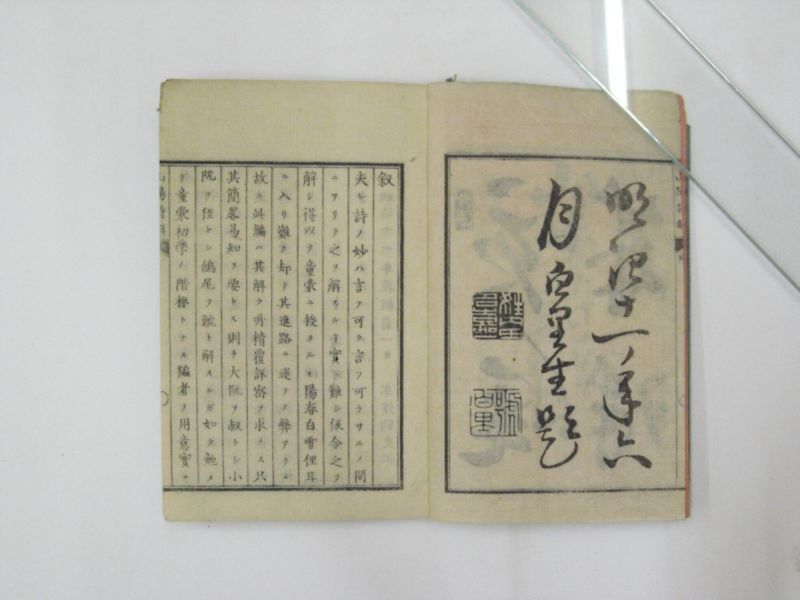 明治十一年六
月百里生題
叙
夫レ詩ノ妙ハ言フ可ク言フ可ラサルノ間
ニアリテ之ヲ解スル實ニ難シ仮令之ヲ
解シ得以テ童蒙ニ授クルモ陽春白雪俚耳
ニ入リ難ク却テ其進路ニ迷フノ弊アラン
故ニ此編ハ其解ク所精覆詳審ヲ求メス只
其簡畧易知ヲ要トス則チ大阮ヲ叔トシ小
阮ヲ侄トシ鴟尾ヲ鯱ト解スルガ如ク勉メ
テ童蒙初學ノ階梯トナス編者ノ用意實ニ